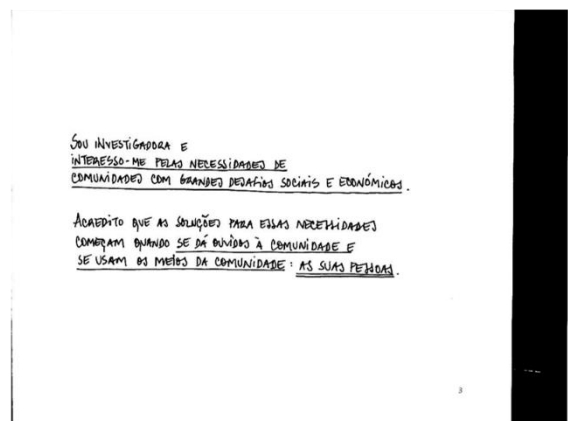 SOU INVESTIGADORA E
INTERESSO-ME PELAS NECESSIDADES DE
COMUNIDADES COM GRANDES DESAFIOS SOCIAIS E ECONÓMICOS.
ACREDITO QUE AS SOLUÇÕES PARA ESSAS NECESSIDADES
COMEÇAM QUANDO SE DÁ OUVIDOS À COMUNIDADE E
SE USAM OS MEIOS DA COMUNIDADE: AS SUAS PESSOAS.
3